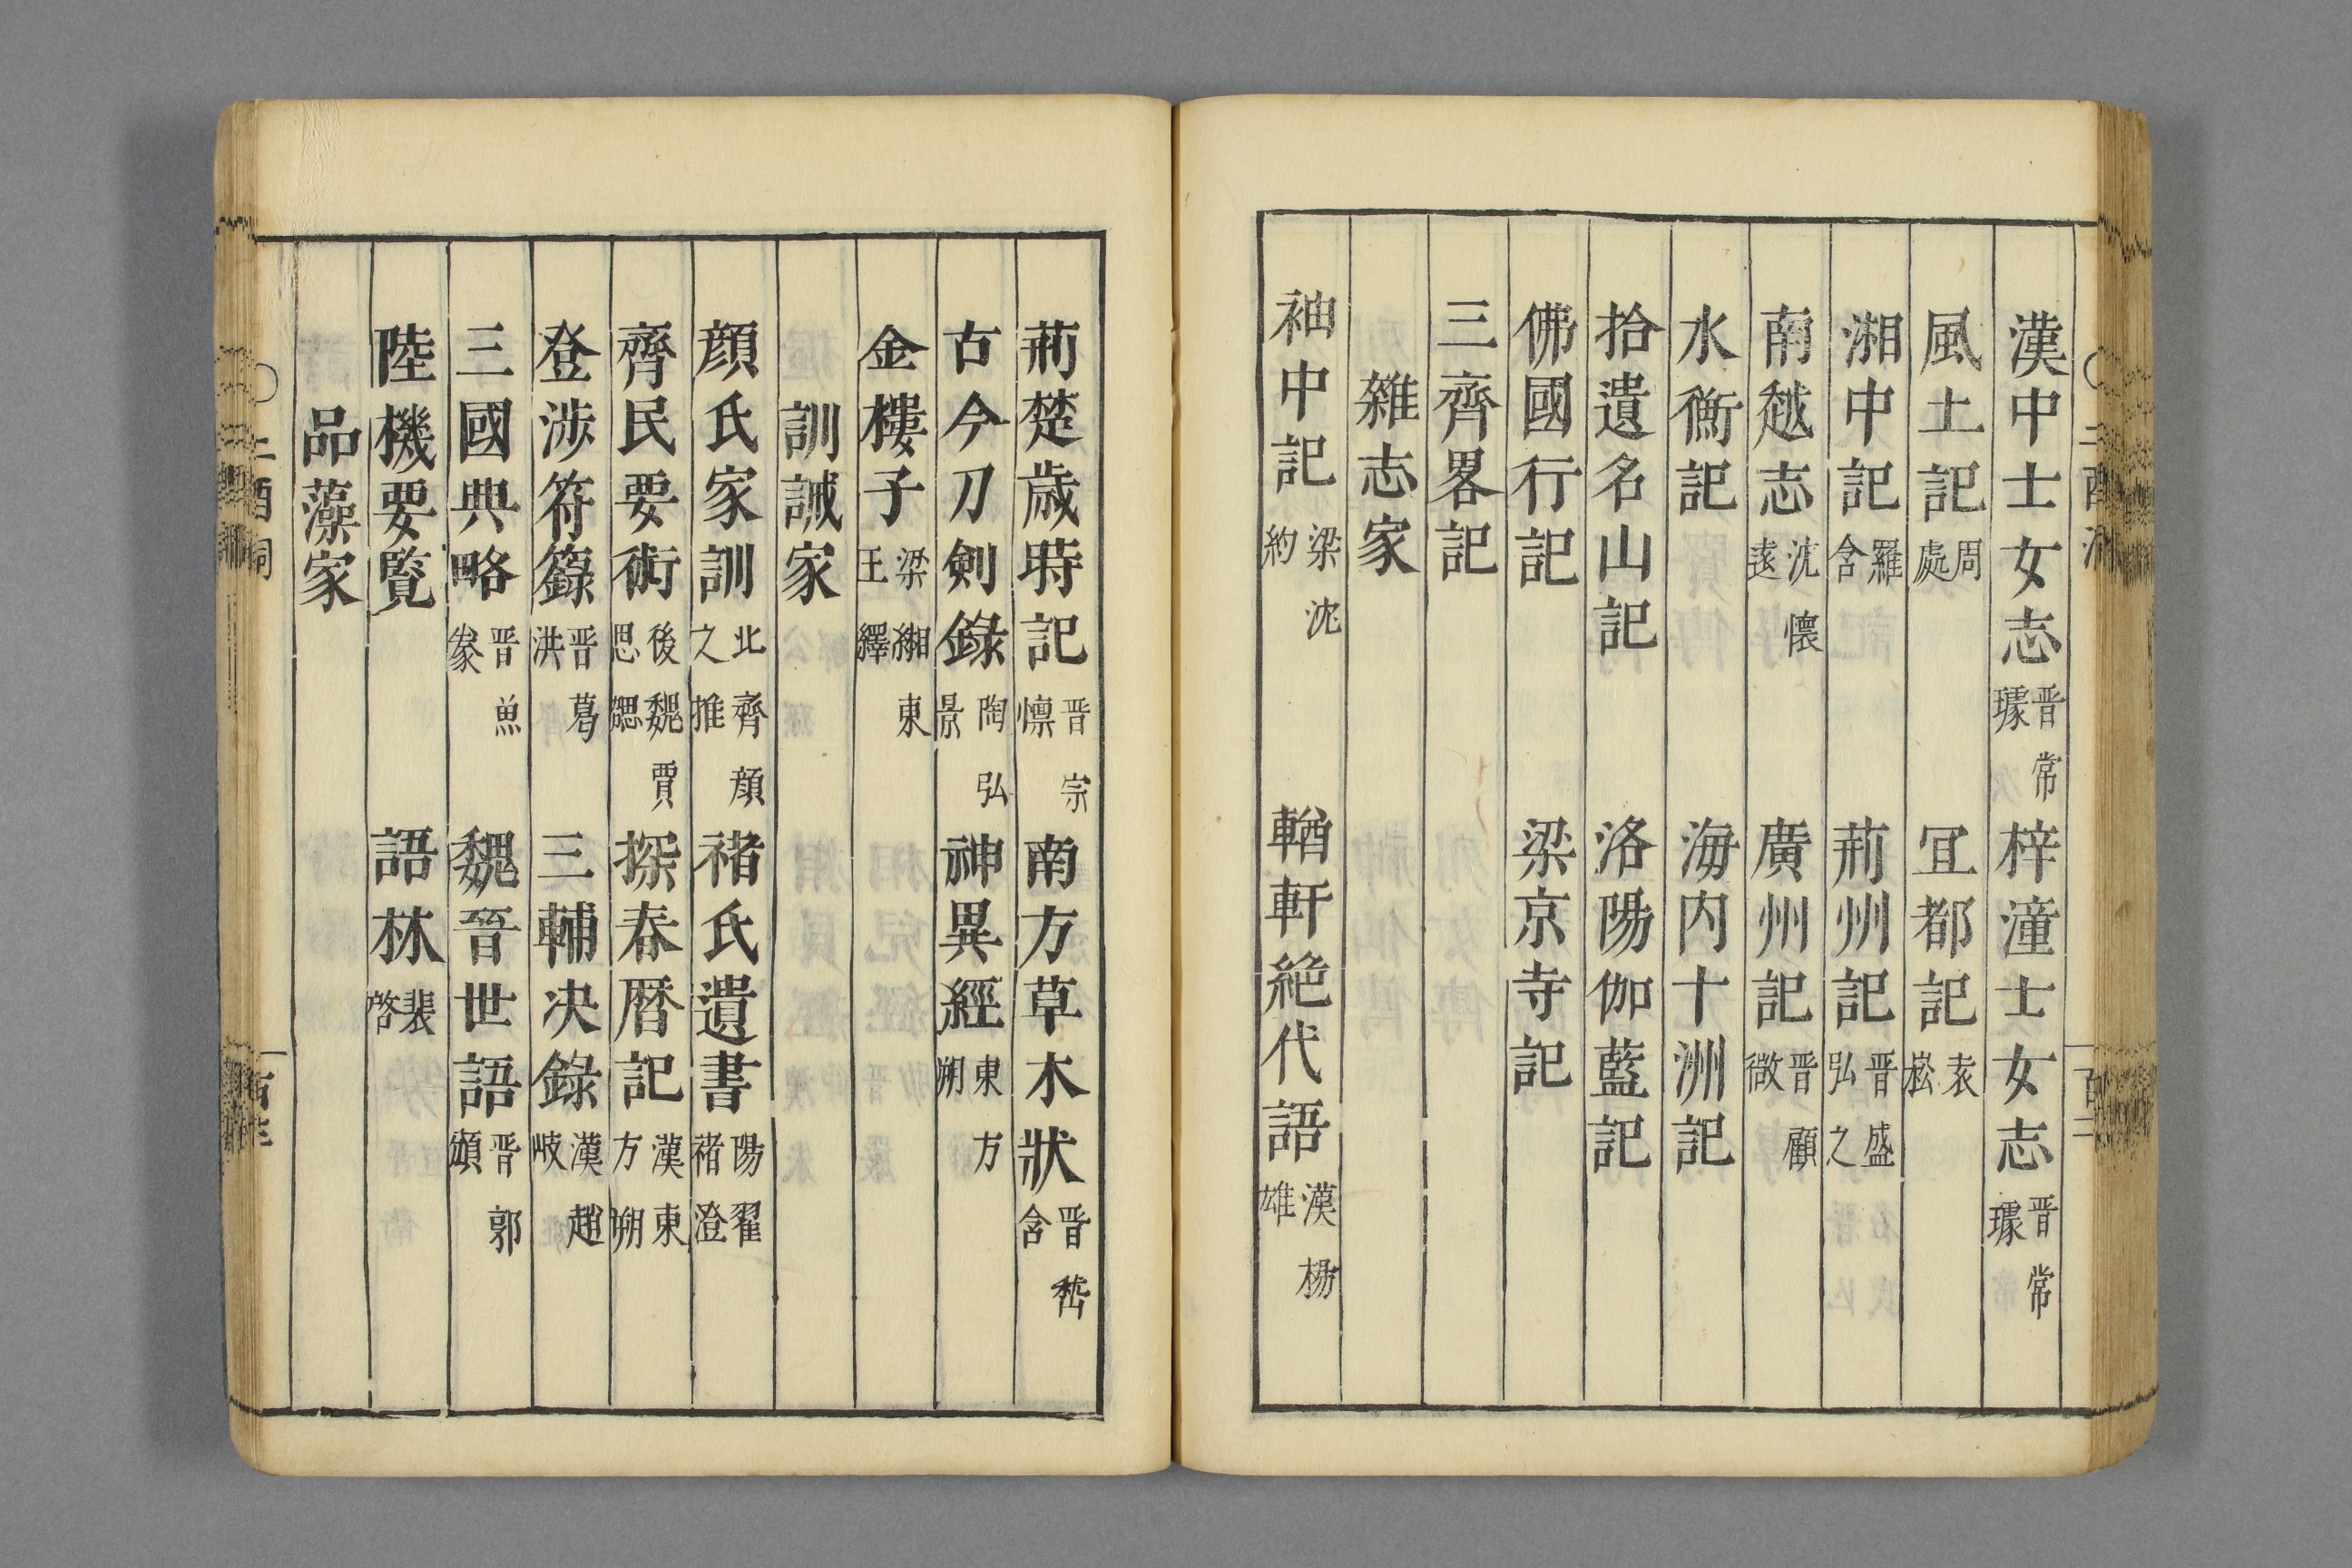 漢中士女志 晋常璩 梓潼士女志 晋常璩
風土記 周處 冝都記 袁崧
湘中記 羅含 荊州記 晋盛弘之
南越志 沈懷遠 廣州記 晋顧微
水衡記 海内十洲記
拾遺名山記 洛陽伽藍記
佛國行記 梁京寺記
三齊畧記
雜志家
袖中記 梁沈約 輶軒絶代語 漢楊雄
荊楚歲時記 晋宗懍 南方草木狀 晋嵆含
古今刀劍錄 陶弘景 神異經 東方朔
金樓子 梁湘東王繹
訓誡家
顔氏家訓 北齊顔之推 褚氏遺書 陽翟褚澄
齊民要術 後魏賈思勰 探春曆記 漢東方朔
登涉符籙 晋葛洪 三輔決錄 漢趙岐
三國典略 晋魚豢 魏晉世語 晋郭頒
陸機要覧 語林 裴啓
品藻家
二酉洞